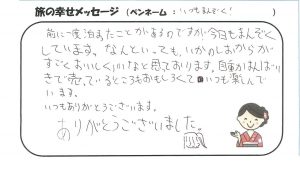 旅の幸せメッセージ(ペンネーム:いつもまんぞく!)
前に一度泊またことがあるのですが今日もまんぞく
しています。なんといっても、いかのしおからが
すごくおいしく、いいなと思っております。自家がんばり
きで売っているところもおもしろくていつも楽しんで
います。
いつもありがとうございます。
ありがとうございました。